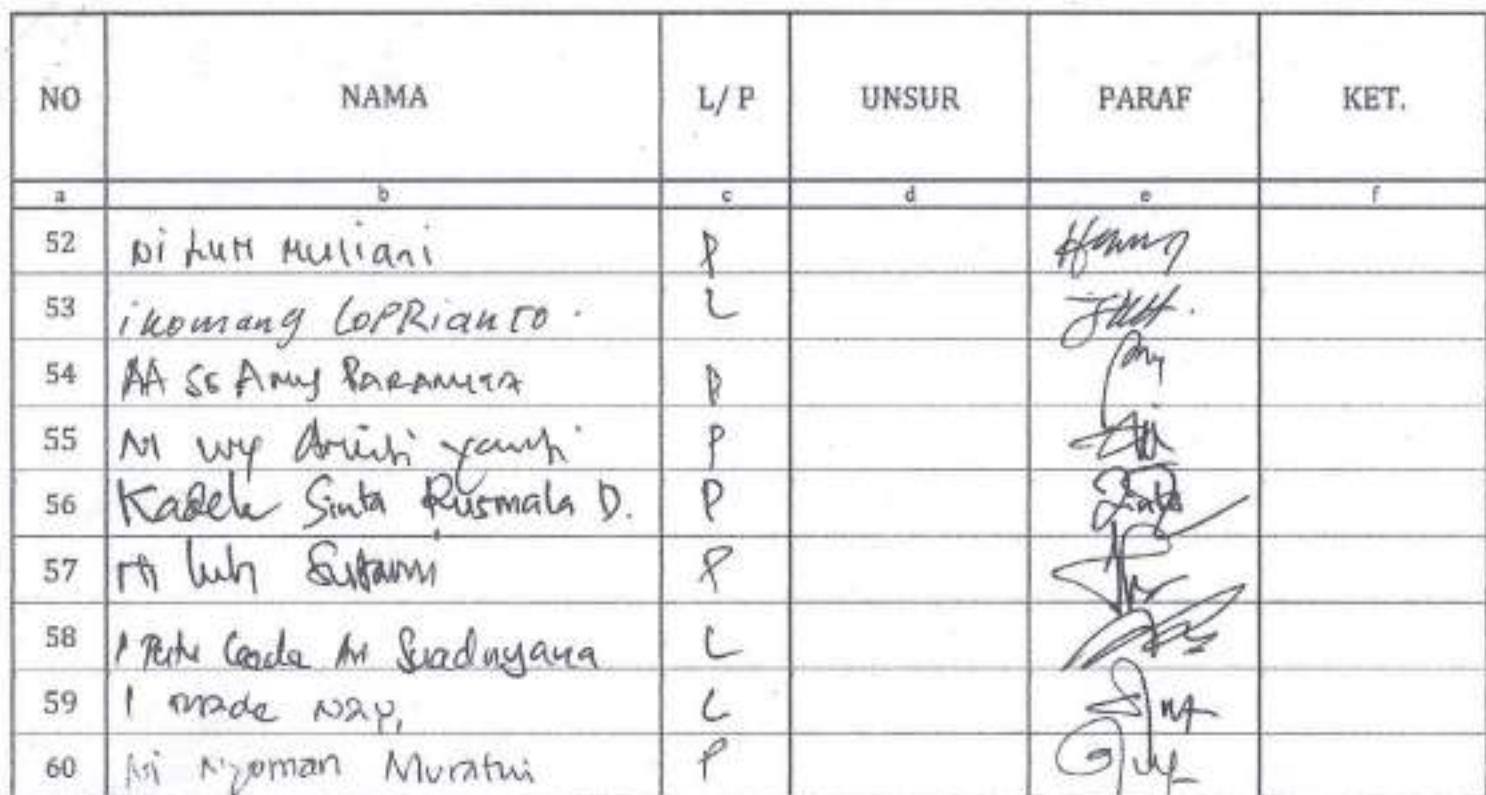 NO NAMA L/P UNSUR PARAF KET.
a b c d e f
52 Ni LUH Muliani P
53 i komang COPRianTO. L
54 AA SG PARAMITA P
55 Ni wy yanti P
56 Kadek Sinta Rusmala D. P
57 Ni luh Sutarmi P
58 I Putu Gede Ari Suadnyana L
59 I made L
60 Ni Nyoman Muratni P